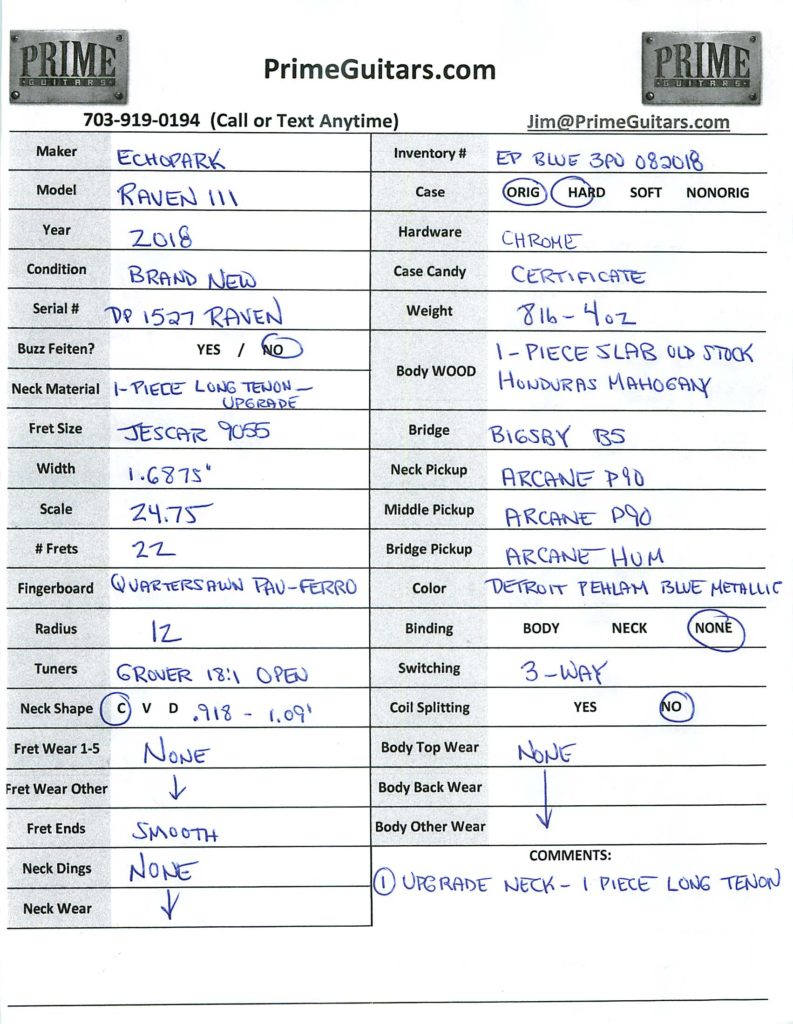 PRIME
GUITARS
PrimeGuitars.com
PRIME
GUITARS
703-919-0194 (Call or Text Anytime)
Jim@PrimeGuitars.com
Maker ECHOPARK
Model RAVEN III
Year 2018
Condition BRAND NEW
Serial # DP 1527 RAVEN
Buzz Feiten? YES / NO
Neck Material 1-PIECE LONG TENON -
UPGRADE
Fret Size JESCAR 9055
Width 1.6875"
Scale 24.75
# Frets 22
Fingerboard QUARTERSAWN PAU-FERRO
Radius 12
Tuners GROVER 18:1 OPEN
Neck Shape C V D .918 - 1.09"
Fret Wear 1-5 NONE
Fret Wear Other ↓
Fret Ends SMOOTH
Neck Dings NONE
Neck Wear ↓
Inventory # EP BLUE 3PU 082018
Case ORIG HARD SOFT NONORIG
Hardware CHROME
Case Candy CERTIFICATE
Weight 8lb-4oz
Body WOOD 1-PIECE SLAB OLD STOCK
HONDURAS MAHOGANY
Bridge BIGSBY B5
Neck Pickup ARCANE P90
Middle Pickup ARCANE P90
Bridge Pickup ARCANE HUM
Color DETROIT PEHLAM BLUE METALLIC
Binding BODY NECK NONE
Switching 3-WAY
Coil Splitting YES NO
Body Top Wear NONE
Body Back Wear ↓
Body Other Wear
COMMENTS:
① UPGRADE NECK - 1 PIECE LONG TENON